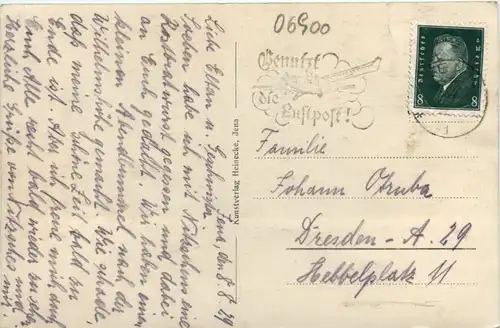 06900
Benutzt
die Luftpost!
Deutsches Reich
8 8
Jena, den 8.8.29
Liebe Eltern u. Geschwister,
Soeben habe ich mit Nitzsches eine
Rostbratwurst gegessen und dabei
an Euch gedacht. Wir haben einen
kleinen Abendbummel nach der
Wilhelmshöhe gemacht. Wie schade,
daß meine schöne Zeit bald zu
Ende ist. Aber ich freue mich auch,
Euch Alle recht bald wieder zu sehen.
Herzliche Grüße von Nitzsches und
Kunstverlag Heinecke, Jena
Familie
Johann Otruba
Dresden-A. 29
Hebbelplatz 11